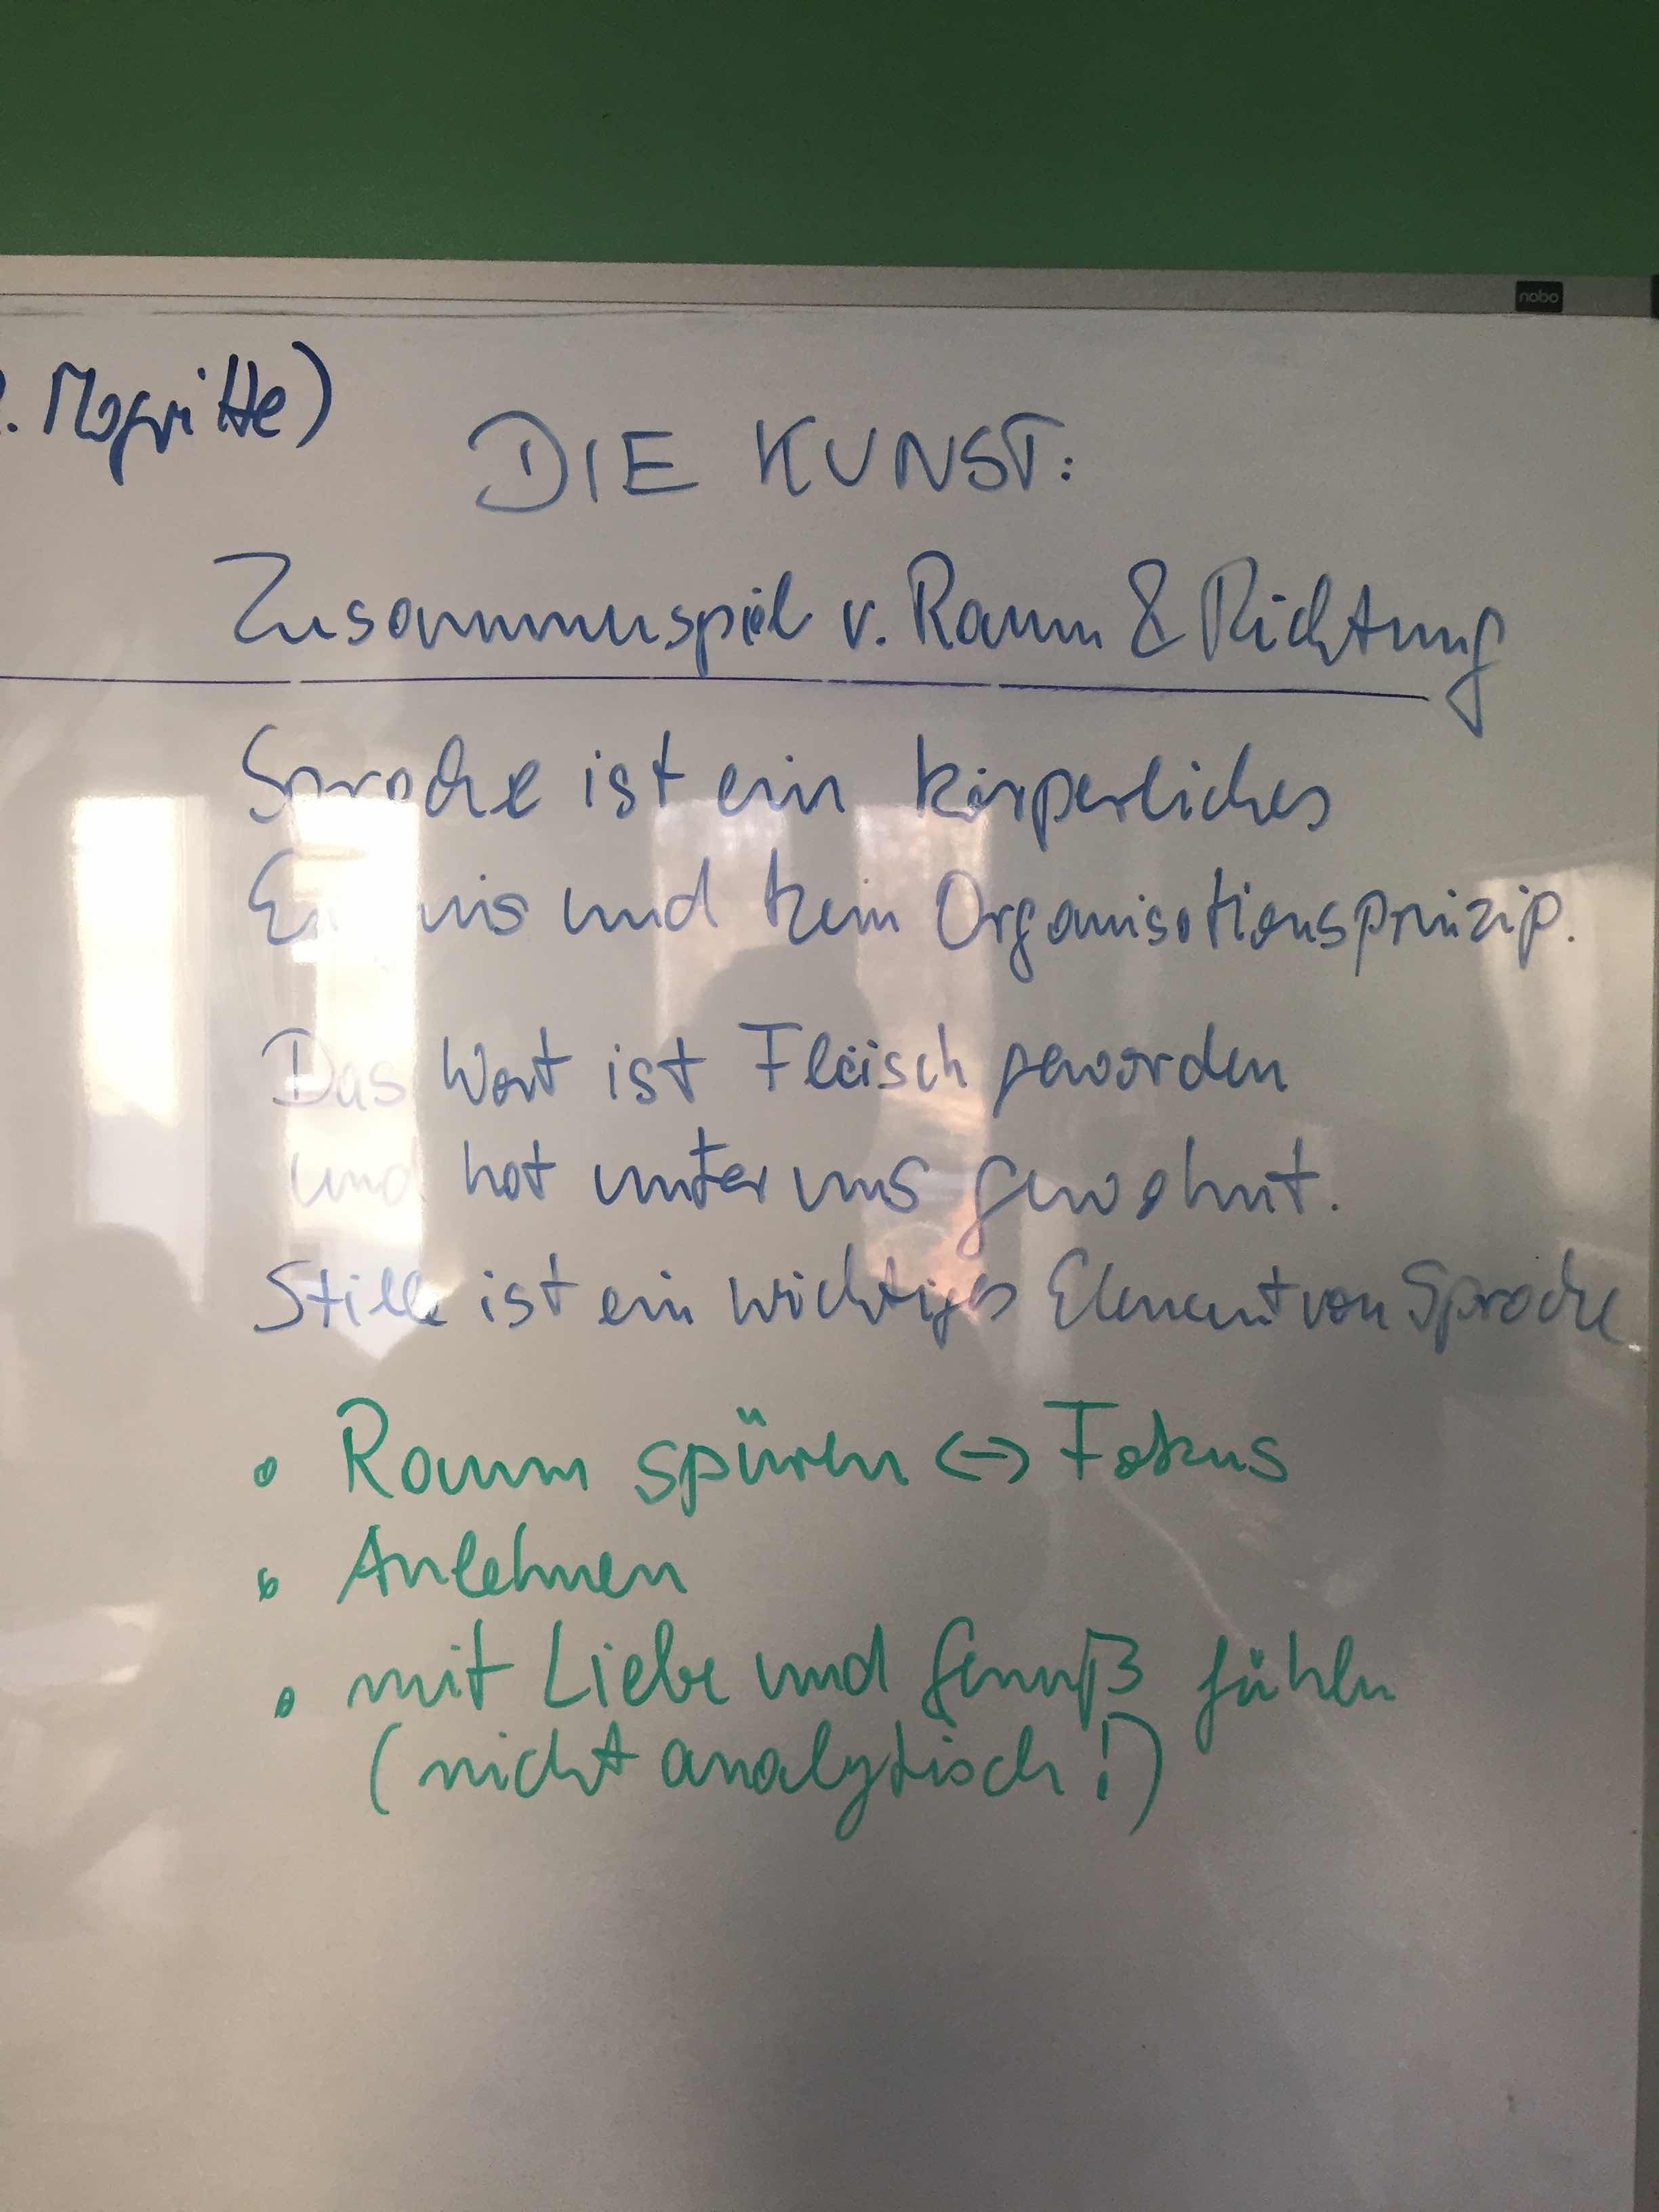 nobo
. Magritte)
DIE KUNST:
Zusammenspiel v. Raum & Richtung
Sprache ist ein körperliches
und kein Organisationsprinzip.
Das Wort ist Fleisch geworden
und hat unter uns gewohnt.
Stille ist ein wichtiges Element von Sprache
• Raum spüren <-> Fokus
• Anlehnen
• mit Liebe und Genuß fühlen
(nicht analytisch!)